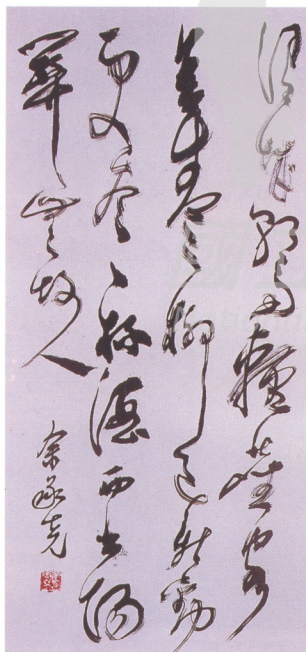 渭城朝雨輕塵客
舍青青柳色新勸
君更盡一杯酒西出陽
關無故人
余承堯